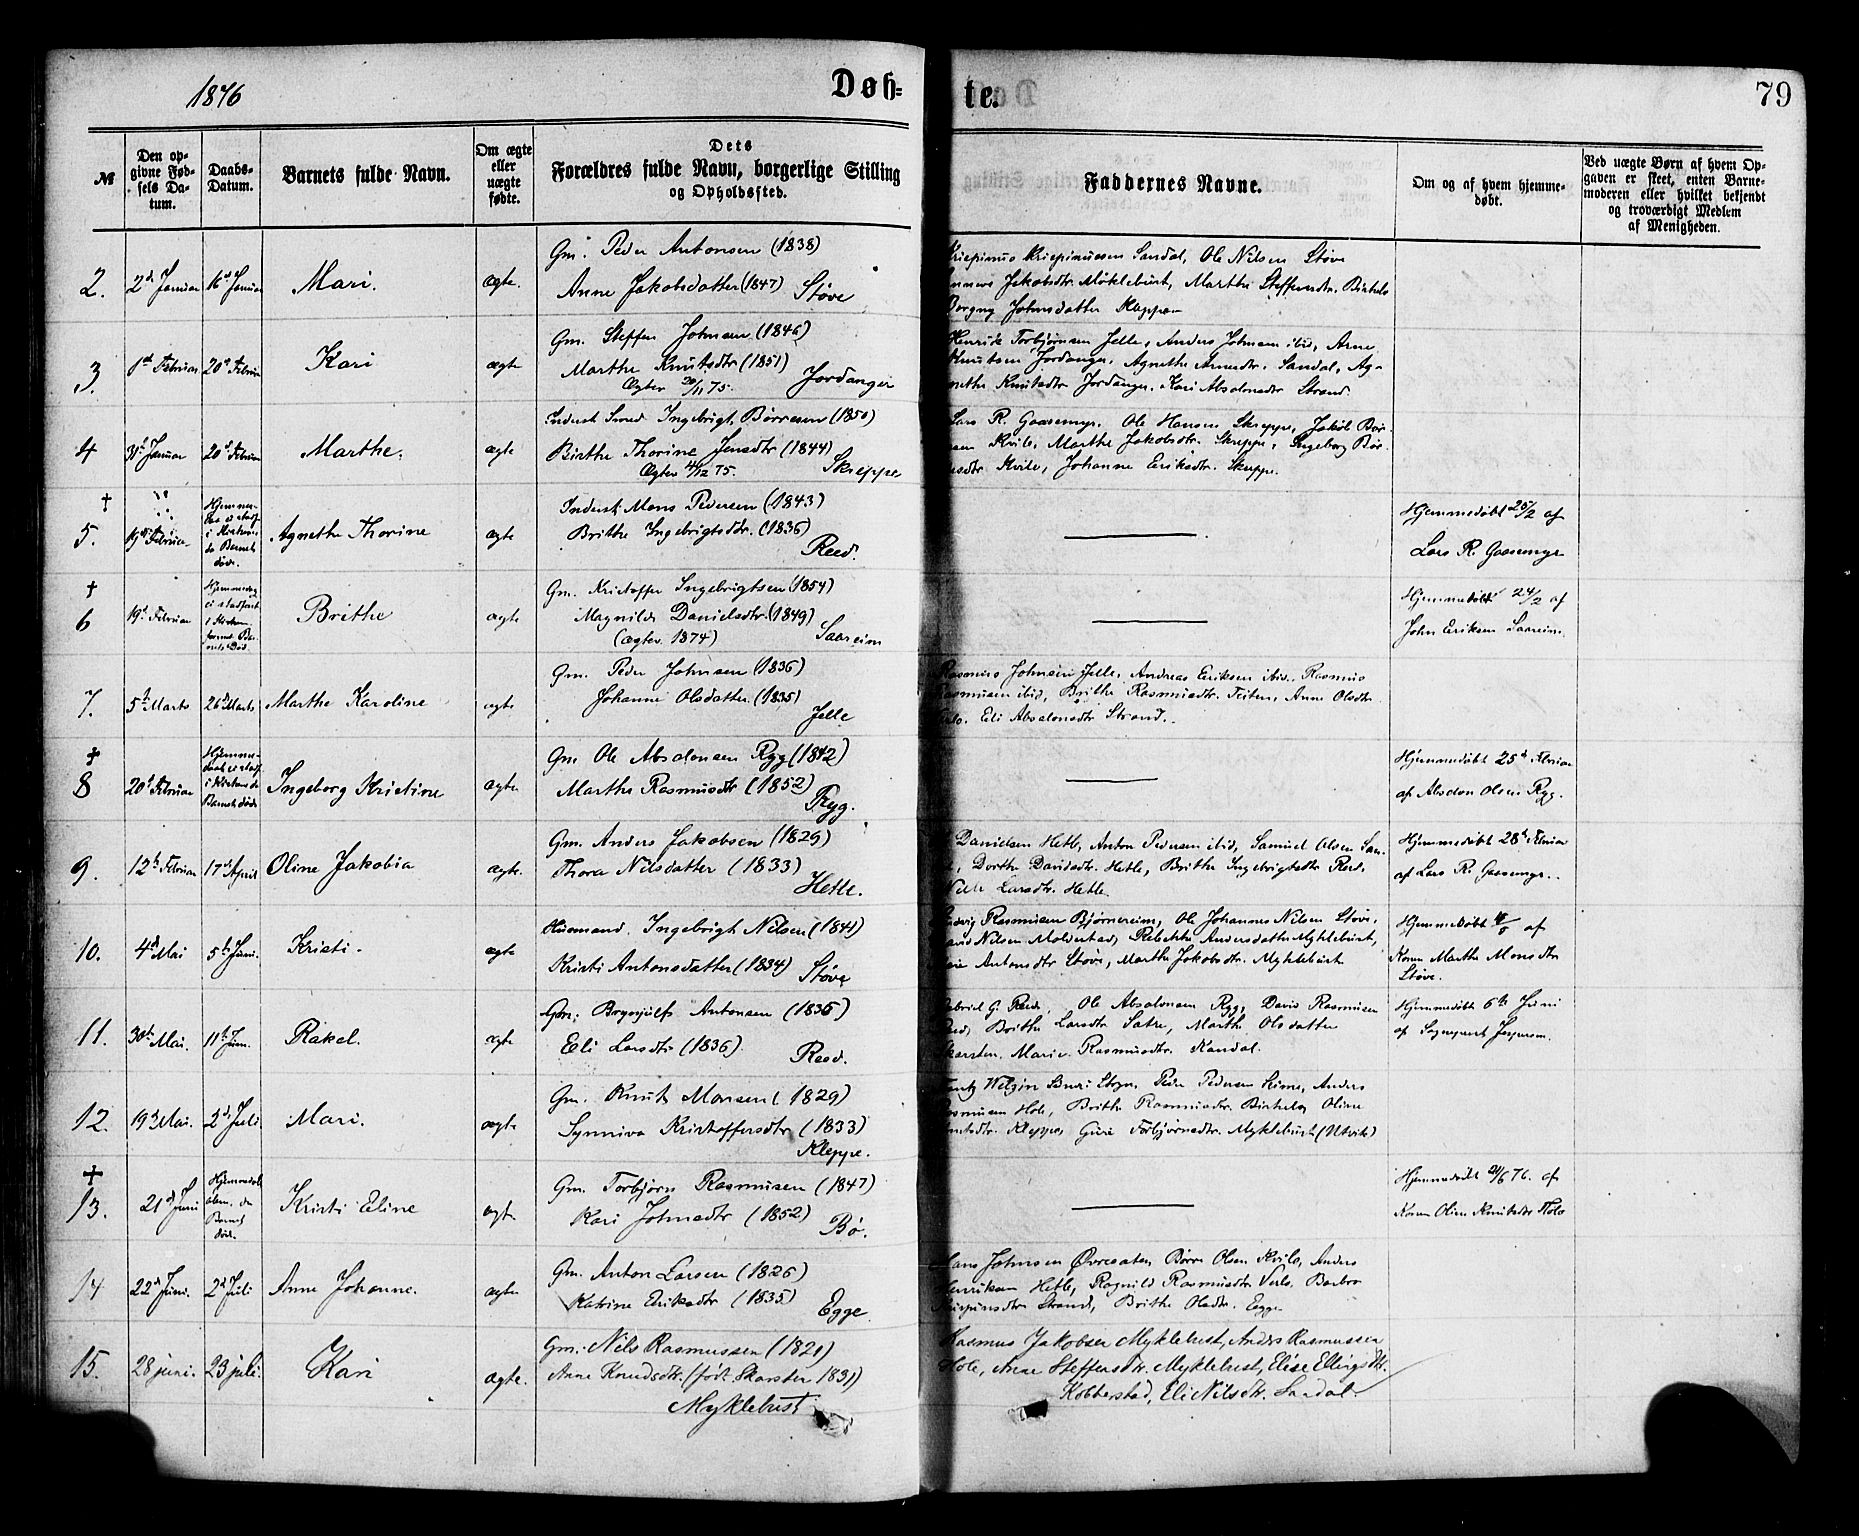 1876
Døb=
te.
79
№
Den op-
givne Fød-
sels Da-
tum.
Daabs-
Datum.
Barnets fulde Navn.
Om ægte
eller
uægte
fødte.
Dets
Forældres fulde Navn, borgerlige Stilling
og Opholdssted.
Faddernes Navne.
Om og af hvem hjemme-
døbt.
Ved uægte Børn af hvem Op-
gaven er skeet, enten Barne-
moderen eller hvilket bekjendt
og troværdigt Medlem
af Menigheden.
2. 2d Januar 16d Januar Mari. ægte.
Gm. Peder Antonsen (1838)
Anne Jakobsdatter (1847) Støve
Krispinus Krispinussen Sandal, Ole Nilsen Støve
Jakobsdtr. Myklebust, Marthe Steffensdtr. Birkelo
Johnsdatter Kleppe
3. 1st Februar 20d Februar Kari ægte
Gm. Steffen Johnsen (1846)
Marthe Knutsdtr (1851)
Ægtev 20/11 75. Jordanger
Henrik Torbjørnsen Jelle, Anders Johnsen ibid, Arne
Knutsen Jordanger, Agnethe Arnesdtr. Sandal, Ag-
nethe Knutsdtr Jordanger, Kari Absalonsdtr Strand.
4 31t Januar 20d Februar Marthe. ægte
Inderst Smed Ingebrigt Børresen (1850)
Birthe Thorine Jensdtr (1844)
Ægtev 4/12 75. Skreppe
Lars R. Gaasemyr. Ole Hansen Skreppe, Jakob Bør-
sen Kvile, Marthe Jakobsdtr. Skreppe, Ingeborg Bør-
resdtr Kvile, Johanne Eriksdtr. Skreppe.
†
5. 19d Februar Hjemme-
i Kirken
da Barnet
døde.
Agnethe Thorine ægte
Inderst Mons Pedersen (1843)
Brithe Ingebrigtsdtr. (1836)
Reed.
Hjemmedøbt 25/2 af
Lars R. Gaasemyr
†
6 19d Februar
Brithe ægte
Gm. Kristoffer Ingebrigtsen (1854)
Magnilde Danielsdtr. (1849)
(ægtev. 1874) Saareim
Hjemmedøbt 24/2 af
John Eriksen Saareim.
7. 5th Marts 26d Marts Marthe Karoline ægte
Gm. Peder Johnsen (1836)
Johanne Olsdatter. (1835)
Jelle
Rasmus Johnsen Jelle, Andreas Eriksen ibid. Rasmus
Rasmusen ibid, Brithe Rasmusdtr. Teiten, Anne Olsdtr
Verlo. Eli Absalonsdtr Strand.
†
8 20d Februar
i Kirken da
Barnet døde
Ingeborg Kristine ægte.
Gm Ole Absalonsen Ryg (1842)
Marthe Rasmusdtr (1852)
Ryg.
Hjemmedøbt 25d Februar
af Absalon Olsen Ryg.
9. 12th Februar 17d April Oline Jakobia ægte.
Gm. Anders Jakobsen (1829)
Thora Nilsdatter (1833)
Hetle.
Danielsen Hetle, Anton Pedersen ibid, Samuel Olsen San-
Dorthe Davidsdtr. Hetle, Brithe Ingebrigtsdtr Reed.
Larsdtr. Hetle.
Hjemmedøbt 28d Februar
af Lars R. Gaasemyr.
10. 4d Mai 5th Juni. Kristi. ægte
Husmand. Ingebrigt Nilsen (1841)
Kristi Antonsdatter (1834) Støve
Ludvig Rasmusen Bjørnereim, Ole Johannes Nilsen Støve.
Nilsen Moldestad, Rebekka Andersdatter Myklebust,
Antonsdtr Støve, Marthe Jakobsdtr. Myklebust
Hjemmedøbt af
Konen Marthe Monsdtr
Støve.
11. 30th Mai. 11th Juni. Rakel. ægte
Gm. Brynjulf Antonsen (1836)
Eli Larsdtr (1836) Reed.
Gabriel G. Reed, Ole Absalonsen Ryg, David Rasmusen
Reed, Brithe Larsdtr Sætre, Marthe Olsdatter
Skarsten. Marie Rasmusdtr. Kandal.
Hjemmedøbt 6th Juni
af Jespersen.
12. 19d Mai. 2d Juli Mari. ægte
Gm. Knut Monsen (1829)
Synniva Kristoffersdtr (1833)
Kleppe.
Stryn, Peder Pedersen Seime, Anders
Rasmusen Hole, Brithe Rasmusdtr. Birkelo, Oline
Kleppe, Guri Torbjørnsdtr. Myklebust (Utvik)
†
13. 21d Juni Hjemmedøbt
da
Barnet
døde.
Kristi Eline ægte
Gm. Torbjørn Rasmusen (1847)
Kari Johnsdtr (1852)
Bø.
Hjemmedøbt 21/6 76. af
Konen Oline Knutsdtr Hole
14 22d Juni. 2d Juli Anne Johanne. ægte
Gm. Anton Larsen (1826)
Katrine Eriksdtr (1835)
Egge
Hans Johnsen Øvresæter, Børre Olsen Kvile, Anders
Henriksen Hetle, Ragnild Rasmusdtr Verlo. Barbro
Krispinsdtr Strand, Brithe Olsdtr. Egge
15. 28 juni. 23 juli. Kari ægte.
Gm. Nils Rasmussen (1821)
Anne Knudsdtr. (født Skarsten 1831)
Myklebust
Rasmus Jakobsen Myklebust, Anders Rasmussen
Hole, Anne Steffensdtr. Myklebust, Elise Ellingsdtr.
Kobberstad, Eli Nilsdtr. Sandal.